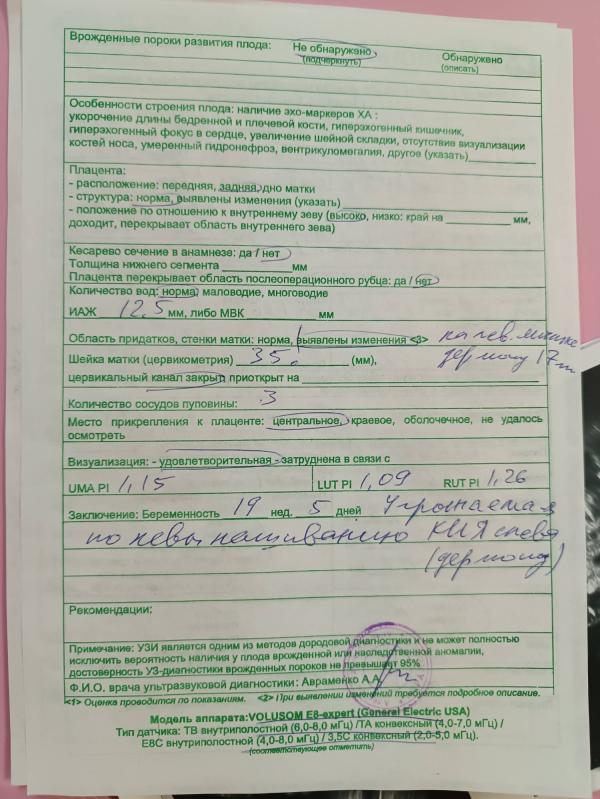 Врожденные пороки развития плода: Не обнаружено Обнаружено
(подчеркнуть) (описать)
Особенности строения плода: наличие эхо-маркеров ХА :
укорочение длины бедренной и плечевой кости, гиперэхогенный кишечник,
гиперэхогенный фокус в сердце, увеличение шейной складки, отсутствие визуализации
костей носа, умеренный гидронефроз, вентрикуломегалия, другое (указать)
Плацента:
- расположение: передняя, задняя, дно матки
- структура: норма, выявлены изменения (указать)
- положение по отношению к внутреннему зеву (высоко, низко: край на мм,
доходит, перекрывает область внутреннего зева)
Кесарево сечение в анамнезе: да / нет
Толщина нижнего сегмента мм
Плацента перекрывает область послеоперационного рубца: да / нет
Количество вод: норма, маловодие, многоводие
ИАЖ 12,5 мм, либо МВК мм
Область придатков, стенки матки: норма, выявлены изменения <3> на лев. яичнике
Шейка матки (цервикометрия) 35. (мм), дермоид 17
цервикальный канал закрыт, приоткрыт на
Количество сосудов пуповины: 3
Место прикрепления к плаценте: центральное, краевое, оболочечное, не удалось
осмотреть
Визуализация: - удовлетворительная - затруднена в связи с
UMA PI 1,15 LUT PI 1,09 RUT PI 1,26
Заключение: Беременность 19 нед. 5 дней Угрожаемая
по невынашиванию КИЯ слева
(дермоид)
Рекомендации:
Примечание: УЗИ является одним из методов дородовой диагностики и не может полностью
исключить вероятность наличия у плода врожденной или наследственной аномалии,
достоверность УЗ-диагностики врожденных пороков не превышает 95%
Ф.И.О. врача ультразвуковой диагностики: Авраменко А.А
<1> Оценка проводится по показаниям. <2> При выявлении изменений требуется подробное описание.
Модель аппарата:VOLUSOM E8-expert (General Electric USA)
Тип датчика: ТВ внутриполостной (6,0-8,0 мГц) /ТА конвексный (4,0-7,0 мГц) /
Е8С внутриполостной (4,0-8,0 мГц) / 3,5С конвексный (2,0-5,0 мГц).
(соответствующее отметить)